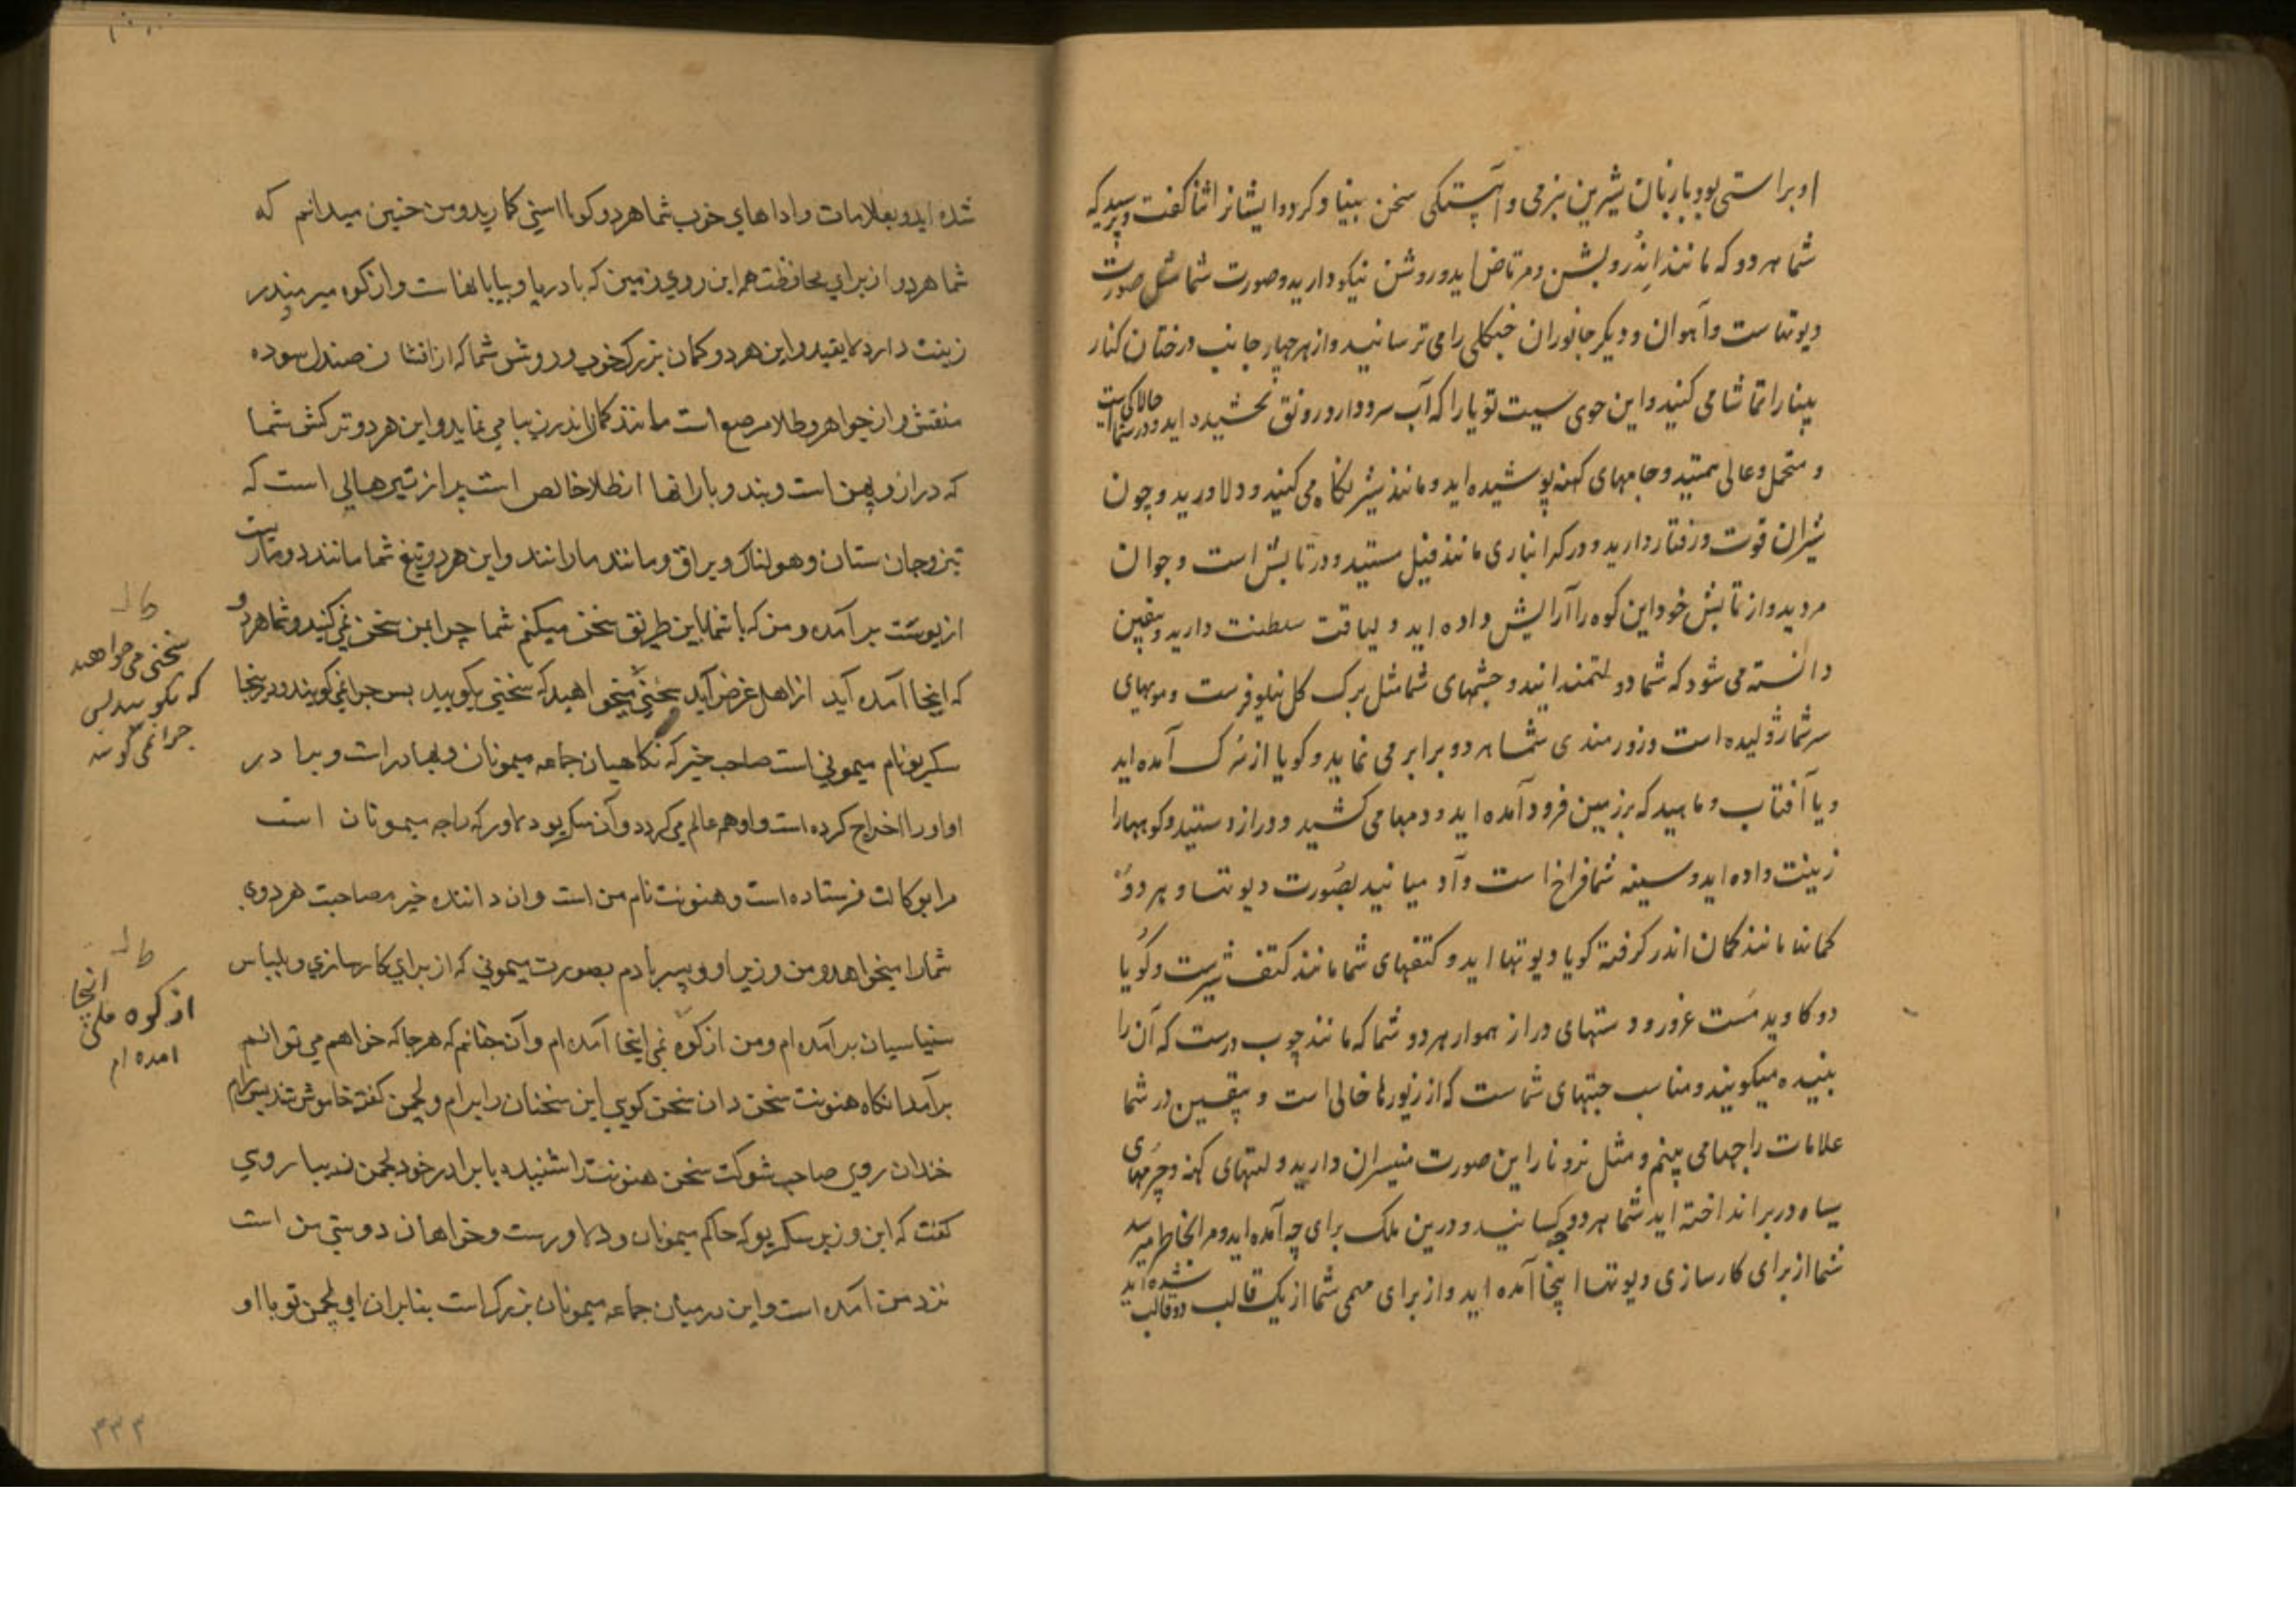 او براستی بود با زبان شیرین بنرمی و آهستگی سخن بنیاد کرد و ایشانرا ثنا گفت و پرسید که
شما هردو که مانند اندر و بشن و مرتاض اید و روشن نیکو دارید و صورت شما مثل صورت
دیوتهاست و آهوان و دیگر جانوران جنگلی را می ترسانید و از هر چهار جانب درختان کنار
پنپا را تماشا می کنید و این جوی را که آب سرد دارد رونق بخشیده اید و در شما
و متحمل و عالی همتید و جامهای کهنه پوشیده اید و مانند شیر نگاه می کنید و دلاورید و چون
شیران قوت و رفتار دارید و در گرانباری مانند فیل مستید و در تابش است و جوان
مردید و از تابش خود این کوه را آرایش داده اید و لیاقت سلطنت دارید و یقین
دانسته می شود که شما دولتمندانید و چشمهای شما مثل برگ گل نیلوفرست و مویهای
سر شما ژولیده است و زورمندی شما هر دو برابر می نماید و گویا از سرگ آمده اید
و یا آفتاب و ماهید که بر زمین فرود آمده اید و می کشید و دراز دستید و کوهها را
زینت داده اید و سینه شما فراخ است و آدمیانید بصورت دیوتها و هر دو
کمانها مانند کمان اندر گرفته گویا دیوتها اید و کتفهای شما مانند کتف شیرست و گویا
دو گاوید مست غرور و دستهای دراز هموار هر دو شما که مانند چوب درست که آن را
بنیده میگویند و مناسب شماست که از زیورها خالی است و یقین در شما
علامات راجها می بینم و مثل نر و ناراین صورت دارید و کهنه و چرمهای
سیاه در بر انداخته اید شما هر دو کیسانید و درین ملک برای چه آمده اید و مرا بخاطر میرسد
شما از برای کارسازی دیوتها اینجا آمده اید و از برای مهمی شما از یک قالب دو قالب شده اید
شده اید و بعلامات و اداهای خوب شما هردو گویا اسنی کمارید و من چنین میدانم که
شما هردو از برای محافظت همه این روی زمین که با دریا و بیابانهاست و از کوه میر مندر
زینت دارد لایقید و این هردو کمان بزرگ خوب و روشن شما که از افشان صندل سوده
منقش و از جواهر و طلا مرصع است مانند کمان اندر زیبا می نماید و این هردو ترکش شما
که دراز و پهن است و بند و بارانها از طلا خالص است پر از تیرهایی است که
تیز و جان ستان و هولناک و براق و مانند مارانند و این هردو تیغ شما مانند دو مارست
از پوست برآمده و من که با شما باین طریق سخن میکنم شما چرا بمن سخن نمی کنید و شما هردو
که اینجا آمده اید از اهل غرض آید سخنی میخواهید که سخنی بگویید پس چرا نمی گویند و در اینجا
سکریو نام میمونی است صاحب خیر که نگاهبان جماعه میمونان و بهادر است و برادر
او او را اخراج کرده است و او همه عالم می گردد و آن سکریو دلاور که راجه میمونان است
مرا بوکالت فرستاده است و هنونت نام من است و آن داننده خیر مصاحبت هردوی
شما را میخواهد و من وزیر او و پسر بادم بصورت میمونی که از برای کارسازی و بلباس
سنیاسیان برآمده ام و من از کوه اینجا آمده ام و آن چنانم که هرجا که خواهم می توانم
برآمد انگاه هنونت سخن دان سخن گوی این سخنان را برام و لچمن گفته خاموش شد پس رام
خندان روی صاحب شوکت سخن هنونت را شنیده با برادر خود لچمن زیبا روی
گفت که این وزیر سکریو که حاکم میمونان و دلاورست و خواهان دوستی من است
نزد من آمده است و این در میان جماعه میمونان بزرگ است بنابران ای لچمن تو با او
سخنی می خواهید
که بگویید پس
چرا نمی گویید
از کوه ملی اینجا
امده ام
۳۳۳